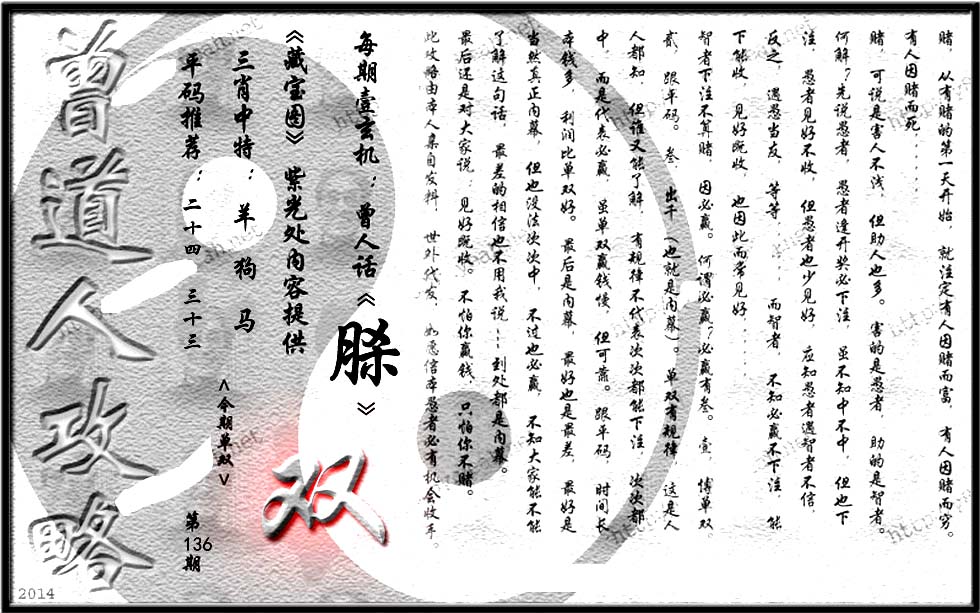 赌，从有赌的第一天开始，就注定有人因赌而富，有人因赌而穷。
有人因赌而死……
赌，可说是害人不浅，但助人也多。害的是愚者，助的是智者。
何解？先说愚者，愚者逢开奖必下注，虽不知中不中，但也下
注，愚者见好不收，但愚者也少见好，应知愚者遇智者不信，
反之，遇愚当友，等等……，而智者，不知必赢不下注，能
下能收，见好既收，也因此而常见好……
智者下注不算赌，因必赢。何谓必赢？必赢有叁。壹，博单双，
贰，跟平码。叁，出千（也就是内幕）。单双有规律，这是人
人都知，但谁又能了解，有规律不代表次次都能下注，次次都
中，而是代表必赢，虽单双赢钱慢，但可靠。跟平码，时间长，
本钱多，利润比单双好。最后是内幕，最好也是最差，最好是
当然真正内幕，但也没法次次中，不过也必赢，不知大家能不能
了解这句话，最差的相信也不用我说……到处都是内幕。
最后还是对大家说：见好既收。不怕你赢钱，只怕你不赌。
此攻略由本人亲自发料，世外代发，如愿信本愚者必有机会收手。
每期壹玄机：曾人话《脎》
《藏宝图》紫光处内容提供
三肖中特：羊 狗 马
平码推荐：二十四 三十三
<今期单双>
双
第136期
曾道人攻略
2014